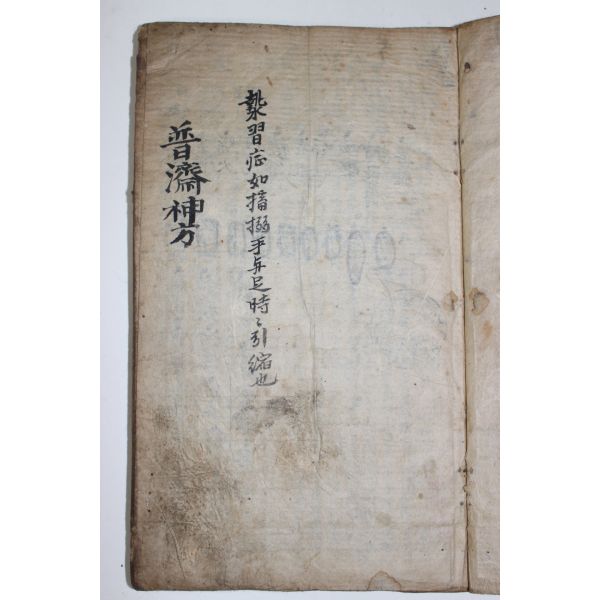 習症如搐搦手与足時〻引縮也
普濟神方